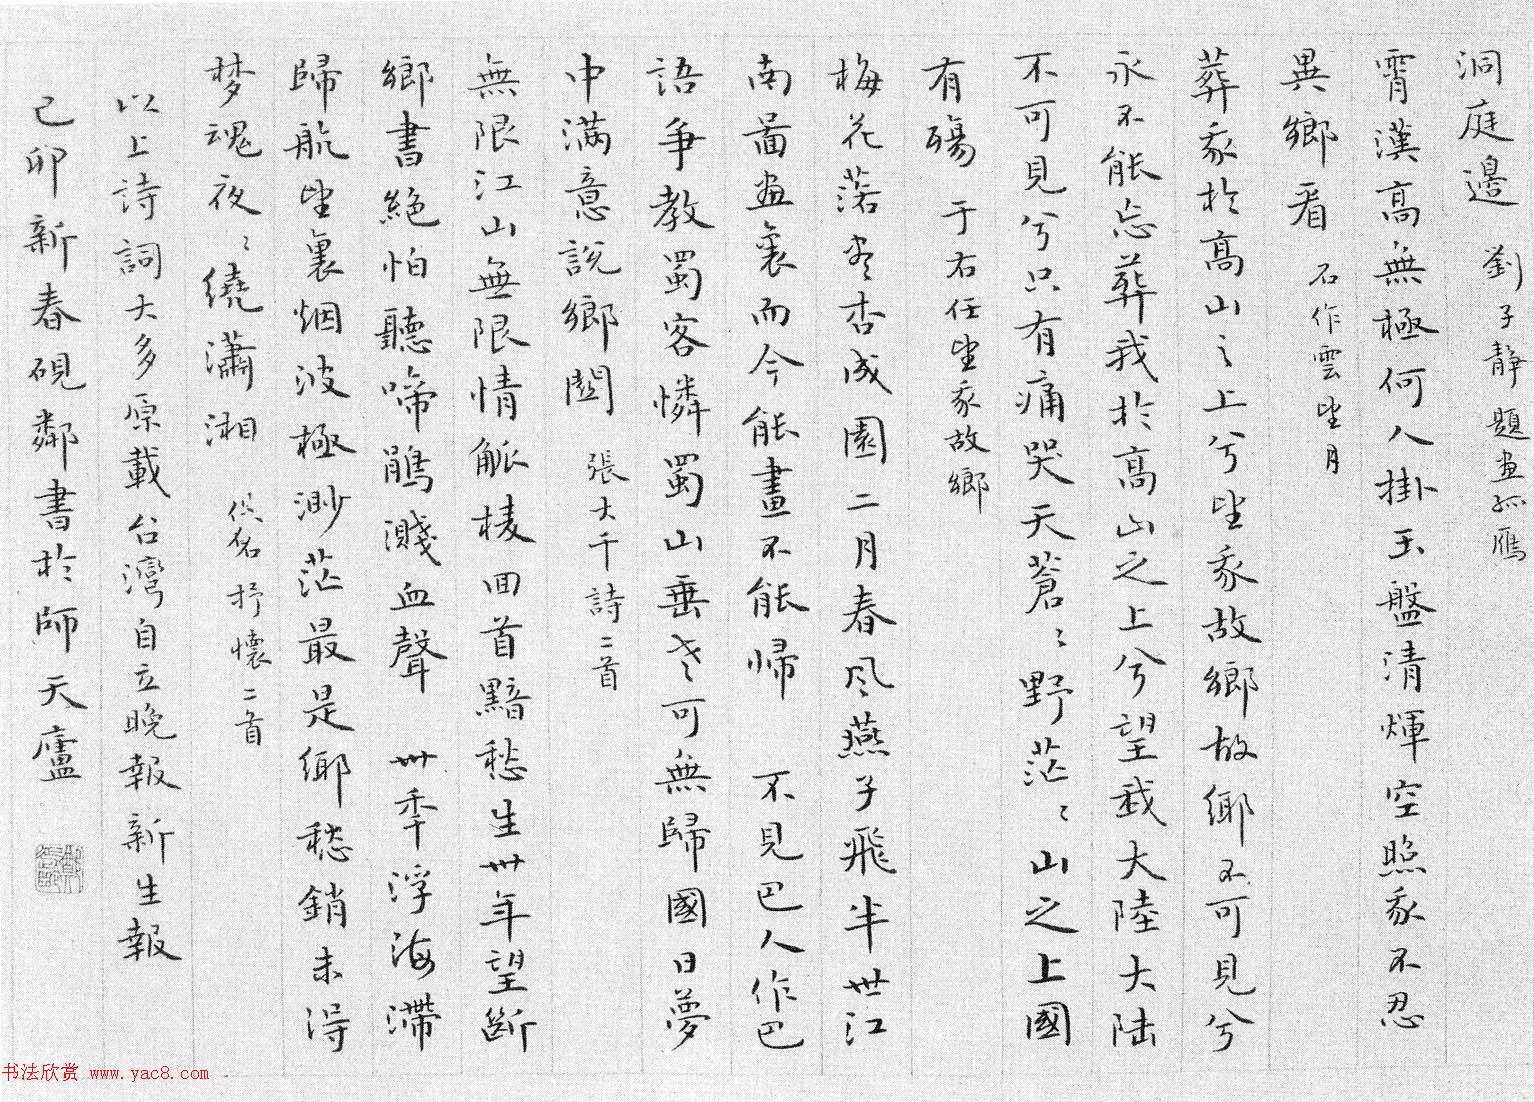 洞庭邊 劉子静題画孤鴈
霄漢高無極何人掛玉盤清煇空照我不忍
異鄉看 石作雲望月
葬我於高山之上兮望我故鄉故鄉不可見兮
永不能忘葬我於高山之上兮望我大陸大陆
不可見兮只有痛哭天蒼〻野茫〻山之上國
有殤 于右任望我故鄉
梅花落盡杏成園二月春风燕子飛半世江
南畵画裏而今能畫不能帰 不見巴人作巴
語爭教蜀客憐蜀山垂老可無歸國日夢
中满意說鄉關 張大千詩二首
無限江山無限情觚棱回首黯愁生卅年望斷
鄉書絕怕聽啼鵑濺血聲 卅年浮海滯
歸航望裏烟波極渺茫最是鄉愁銷未得
梦魂夜〻繞瀟湘 佚名抒懷二首
以上詩詞大多原載台灣自立晚報新生報
己卯新春硯鄰書於師天廬
书法欣赏 www.yac8.com